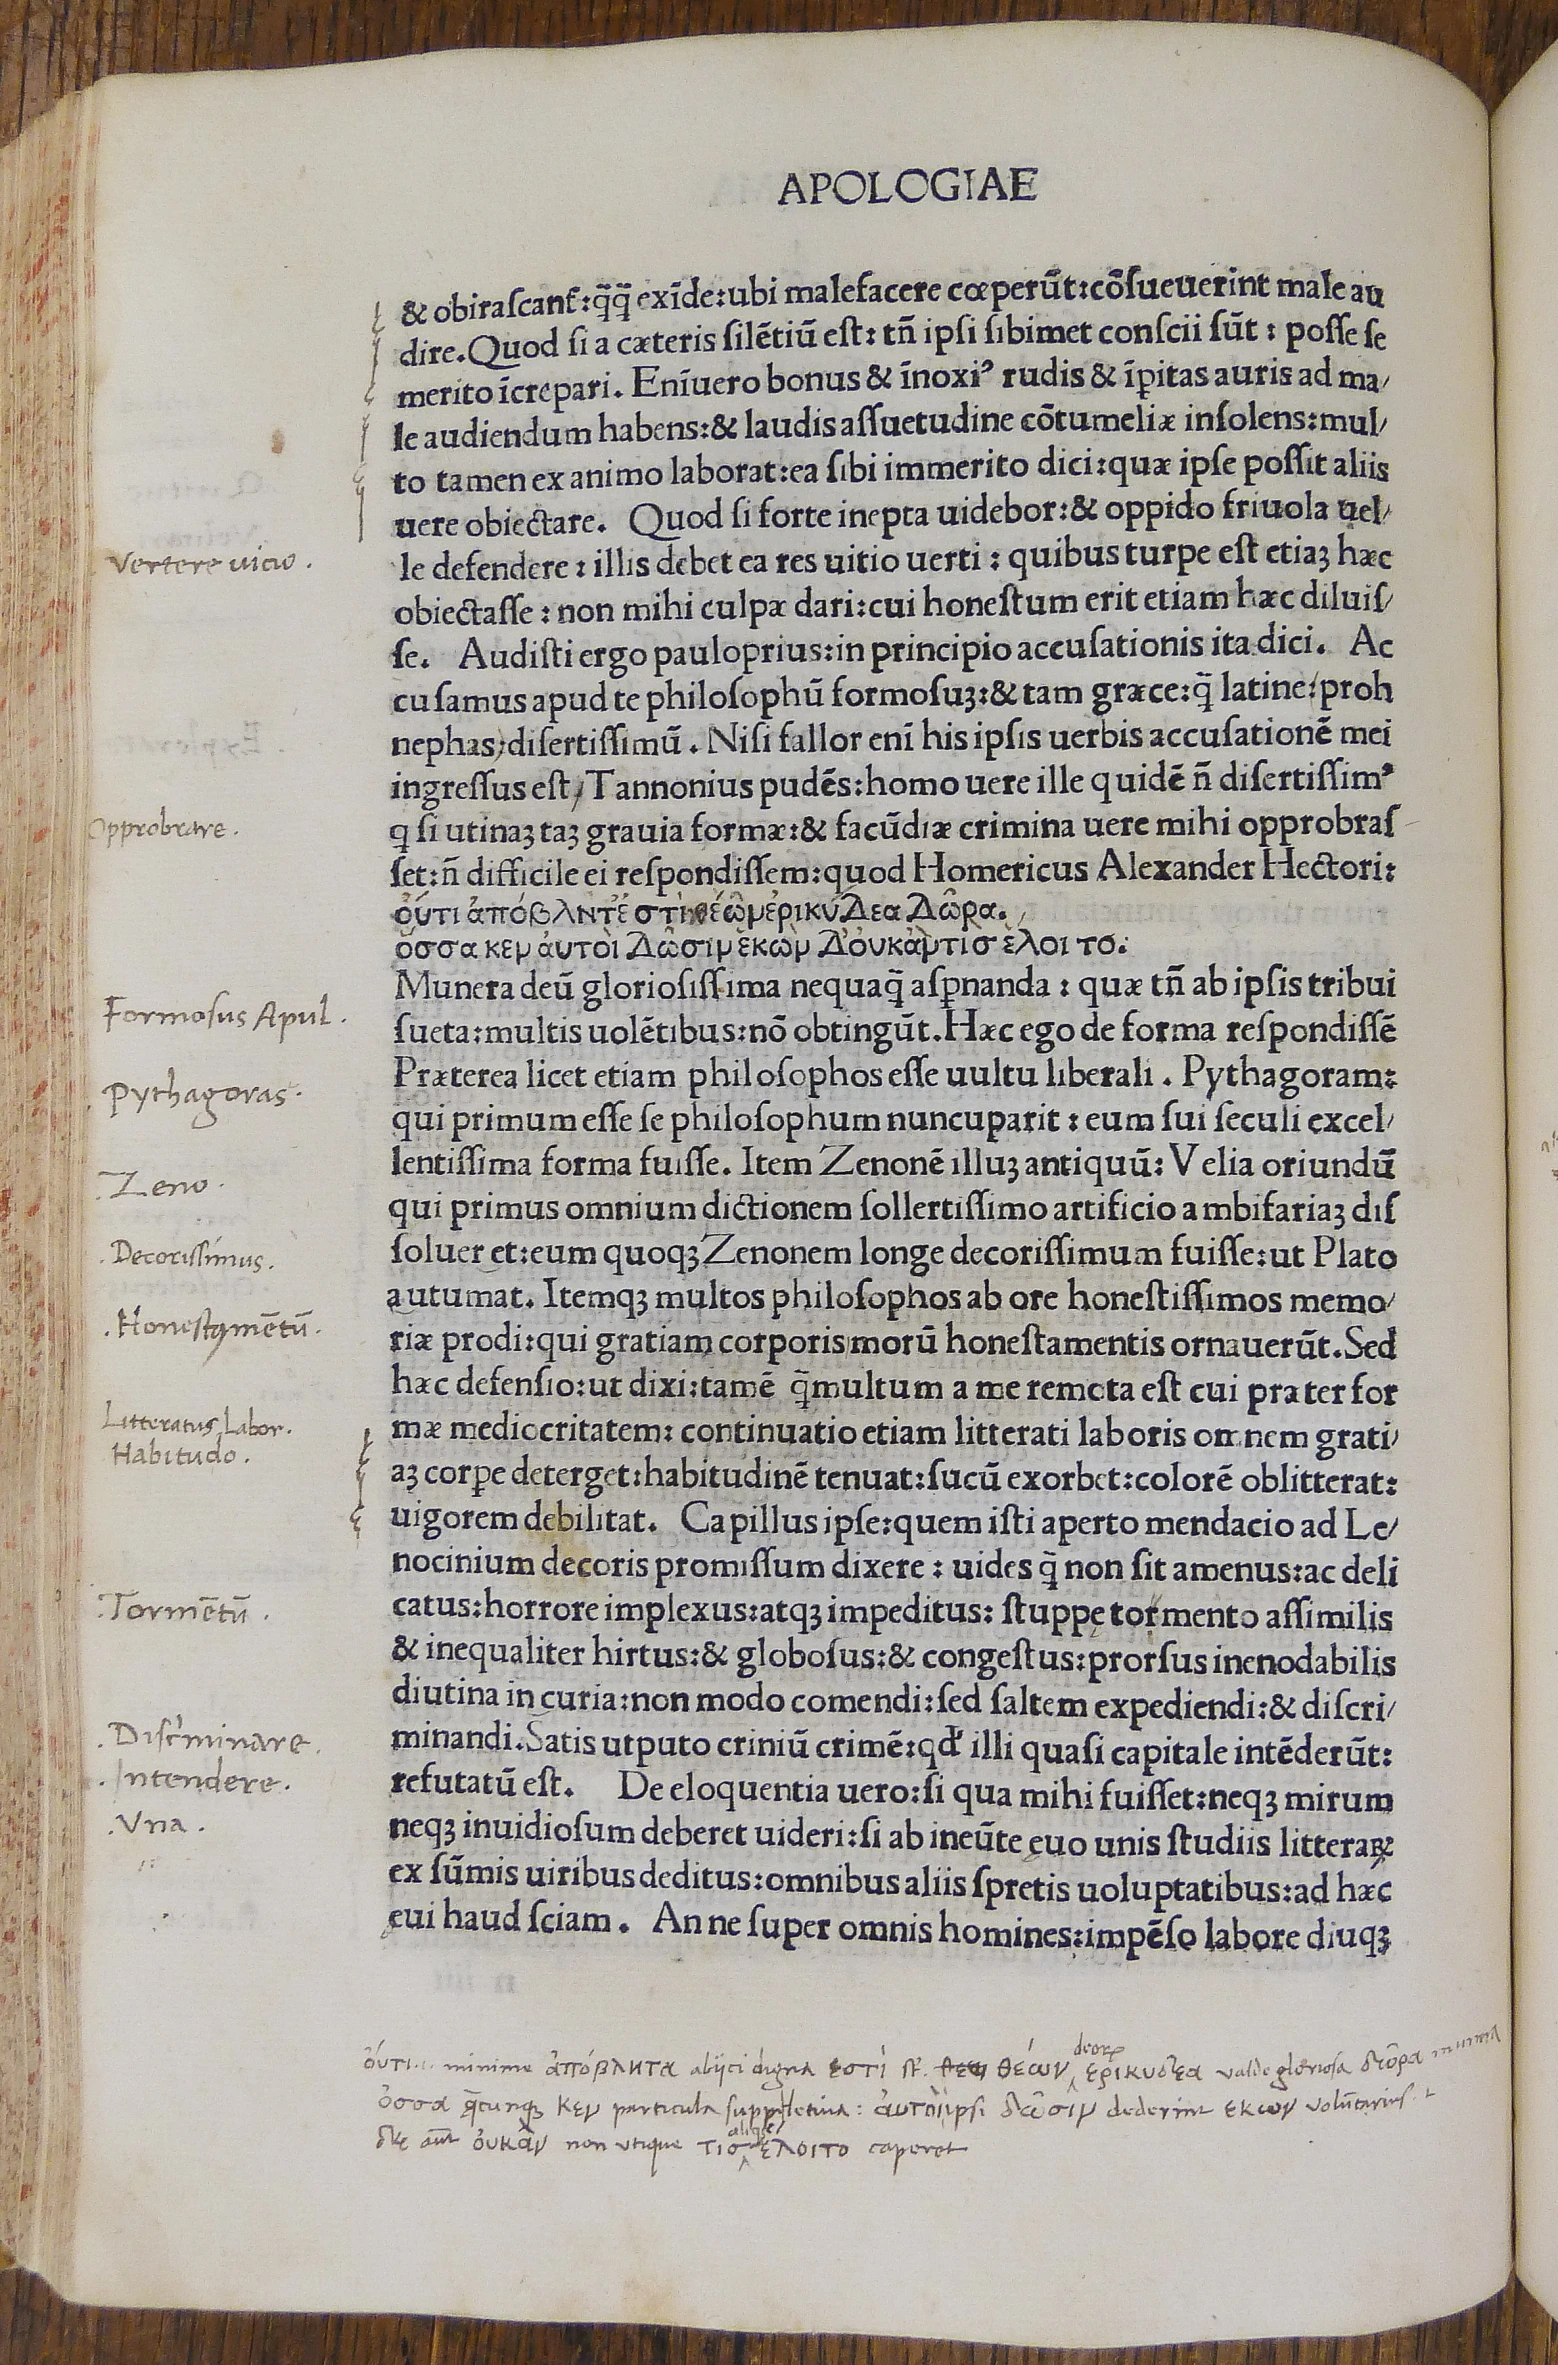 APOLOGIAE
& obiraſcant᷑:q̄q̄ exīde:ubi malefacere cœperūt:cōſueuerint male au
dire.Quod ſi a cæteris ſilētiū eſt: tñ ipſi ſibimet conſcii ſūt : poſſe ſe
merito īcrepari. Enīuero bonus & īnoxiꝰ rudis & īꝑitas auris ad ma/
le audiendum habens:& laudis aſſuetudine cōtumeliæ inſolens:mul/
to tamen ex animo laborat:ea ſibi immerito dici:quæ ipſe poſſit aliis
uere obiectare. Quod ſi forte inepta uidebor:& oppido friuola uel/
Vertere vicio.
le defendere : illis debet ea res uitio uerti : quibus turpe eſt etiaꝫ hæc
obiectaſſe : non mihi culpæ dari:cui honeſtum erit etiam hæc diluiſ/
ſe. Audiſti ergo pauloprius:in principio accuſationis ita dici. Ac
cuſamus apud te philoſophū formoſuꝫ:& tam græce:q̄ latine:proh
nephas,diſertiſſimū. Niſi fallor enī his ipſis uerbis accuſationē mei
ingreſſus eſt, Tannonius pudēs:homo uere ille quidē ñ diſertiſſimꝰ
Opprobrare.
q ſi utinaꝫ taꝫ grauia formæ:& facūdiæ crimina uere mihi opprobraſ
ſet:ñ difficile ei reſpondiſſem:quod Homericus Alexander Hectori:
ὀύτι ἀπόβληντέ στὶ θέωῦ μερικύδεα Δῶρα.
ὅσσα κεν ἀυτοὶ Δῶσιν ἑκὼν Δ'ὀυκἀντισ ἑλοι το.
Formosus Apul.
Munera deū glorioſiſſima nequaq̄ aſꝑnanda : quæ tñ ab ipſis tribui
ſueta:multis uolētibus:nō obtingūt.Hæc ego de forma reſpondiſſē
Pythagoras.
Præterea licet etiam philoſophos eſſe uultu liberali. Pythagoram:
qui primum eſſe ſe philoſophum nuncuparit : eum ſui ſeculi excel/
.Zeno.
lentiſſima forma fuiſſe. Item Zenonē illuꝫ antiquū: Velia oriundū
qui primus omnium dictionem ſollertiſſimo artificio ambifariaꝫ diſ
.Decorissimus.
ſoluer et:eum quoqꝫ Zenonem longe decoriſſimum fuiſſe:ut Plato
autumat. Itemqꝫ multos philoſophos ab ore honeſtiſſimos memo/
.Honestamētū.
riæ prodi:qui gratiam corporis morū honeſtamentis ornauerūt.Sed
hæc defenſio:ut dixi:tamē q̄multum a me remota eſt cui præter for
Litteratus Labor.
mæ mediocritatem: continuatio etiam litterati laboris omnem grati/
Habitudo.
aꝫ corꝑe deterget:habitudinē tenuat:ſucū exorbet:colorē oblitterat:
uigorem debilitat. Capillus ipſe:quem iſti aperto mendacio ad Le/
nocinium decoris promiſſum dixere : uides q̄ non ſit amenus:ac deli
.Tormētū.
catus:horrore implexus:atqꝫ impeditus: ſtuppę tormento aſſimilis
& inequaliter hirtus:& globoſus:& congeſtus:prorſus inenodabilis
diutina in curia:non modo comendi:ſed ſaltem expediendi:& diſcri/
.Discriminare.
minandi.Satis ut puto criniū crimē:qđ illi quaſi capitale intēderūt:
.Intendere.
refutatū eſt. De eloquentia uero:ſi qua mihi fuiſſet:neqꝫ mirum
.Vna.
neqꝫ inuidioſum deberet uideri:ſi ab ineūte ęuo unis ſtudiis litteraꝝ
ex ſūmis uiribus deditus:omnibus aliis ſpretis uoluptatibus:ad hæc
ęui haud ſciam. An ne ſuper omnis homines:impēſo labore diuqꝫ
ὀύτι minime ἀπόβλητα abijci digna ἐστὶ θέων deorꝝ ἐρικυδέα valde gloriosa δῶρα munera
ὅσσα q̄cunqꝫ κεν particula suppletiua: ἀυτοὶ ipsi δῶσιν dederint ἑκων volūtarius
δὲ aūt ὀυκὰν non vtique τισ aliqs ἕλοιτο caperet